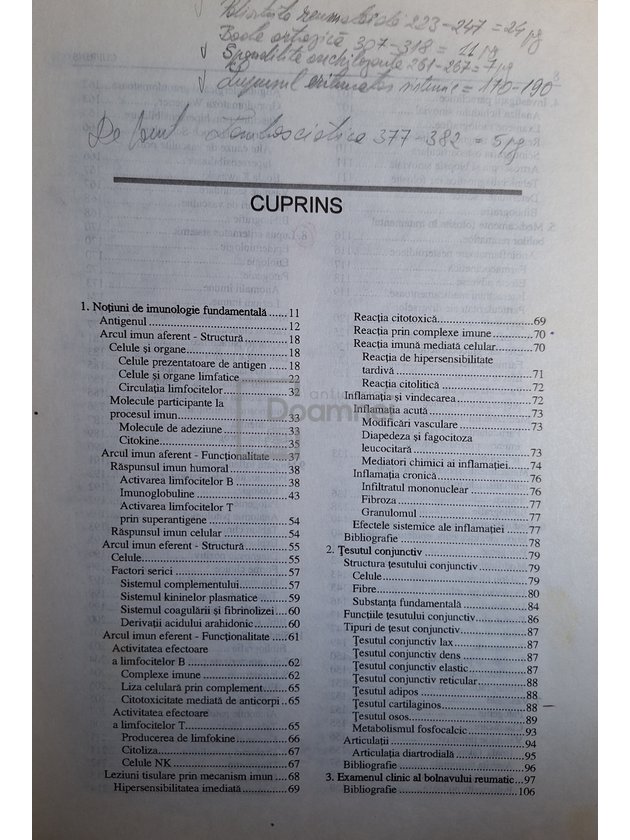 Poliartrita reumatoidă 223-247 = 24 pg
Boala artrozică 307-318 = 11 pg
√ Spondilita anchilozantă 261-267 = 7 pg
√ Lupusul eritematos sistemic = 170-190
De făcut Lombosciatica 377-382 = 5 pg
CUPRINS
1. Noțiuni de imunologie fundamentală ......11
Antigenul ...... 12
Arcul imun aferent - Structură ...... 18
Celule și organe...... 18
Celule prezentatoare de antigen ...... 18
Celule și organe limfatice ...... 22
Circulația limfocitelor ...... 32
Molecule participante la
procesul imun...... 33
Molecule de adeziune ...... 33
Citokine...... 35
Arcul imun aferent - Funcționalitate ..... 37
Răspunsul imun humoral ...... 38
Activarea limfocitelor B ...... 38
Imunoglobuline ...... 43
Activarea limfocitelor T
prin superantigene ...... 54
Răspunsul imun celular ...... 54
Arcul imun eferent - Structură...... 55
Celule...... 55
Factori serici ...... 57
Sistemul complementului...... 57
Sistemul kininelor plasmatice ...... 59
Sistemul coagulării și fibrinolizei .... 60
Derivații acidului arahidonic...... 60
Arcul imun eferent - Funcționalitate ..... 61
Activitatea efectoare
a limfocitelor B ...... 62
Complexe imune ...... 62
Liza celulară prin complement...... 65
Citotoxicitate mediată de anticorpi .. 65
Activitatea efectoare
a limfocitelor T...... 65
Producerea de limfokine ...... 66
Citoliza...... 67
Celule NK ...... 67
Leziuni tisulare prin mecanism imun .... 68
Hipersensibilitatea imediată...... 69
Reacția citotoxică...... 69
Reacția prin complexe imune ...... 70
Reacția imună mediată celular...... 70
Reacția de hipersensibilitate
tardivă ...... 71
Reacția citolitică ...... 72
Inflamația și vindecarea...... 72
Inflamația acută...... 73
Modificări vasculare ...... 73
Diapedeza și fagocitoza
leucocitară ...... 73
Mediatori chimici ai inflamației..... 74
Inflamația cronică...... 76
Infiltratul mononuclear ...... 76
Fibroza ...... 77
Granulomul ...... 77
Efectele sistemice ale inflamației ..... 77
Bibliografie ...... 78
2. Țesutul conjunctiv ...... 79
Structura țesutului conjunctiv...... 79
Celule...... 79
Fibre...... 80
Substanța fundamentală ...... 84
Funcțiile țesutului conjunctiv...... 86
Tipuri de țesut conjunctiv...... 87
Țesutul conjunctiv lax...... 87
Țesutul conjunctiv dens ...... 87
Țesutul conjunctiv elastic...... 87
Țesutul conjunctiv reticular...... 88
Țesutul adipos ...... 88
Țesutul cartilaginos...... 88
Țesutul osos...... 89
Metabolismul fosfocalcic...... 93
Articulații ...... 94
Articulația diartrodială ...... 95
Bibliografie ...... 96
3. Examenul clinic al bolnavului reumatic...97
Bibliografie ...... 106